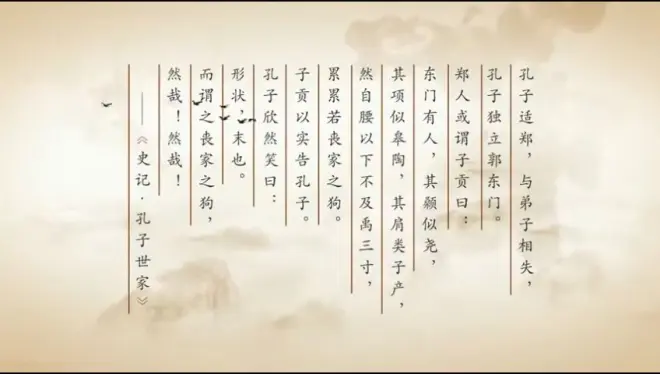 孔子适郑，与弟子相失，
孔子独立郭东门。
郑人或谓子贡曰：
东门有人，其颡似尧，
其项似皋陶，其肩类子产，
然自腰以下不及禹三寸，
累累若丧家之狗。
子贡以实告孔子。
孔子欣然笑曰：
形状，末也。
而谓之丧家之狗，
然哉！然哉！
——《史记·孔子世家》